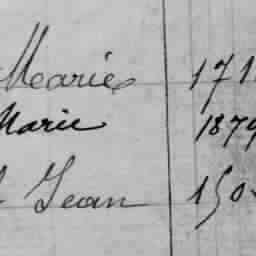 Marie 171
Marie 1879
Jean 150